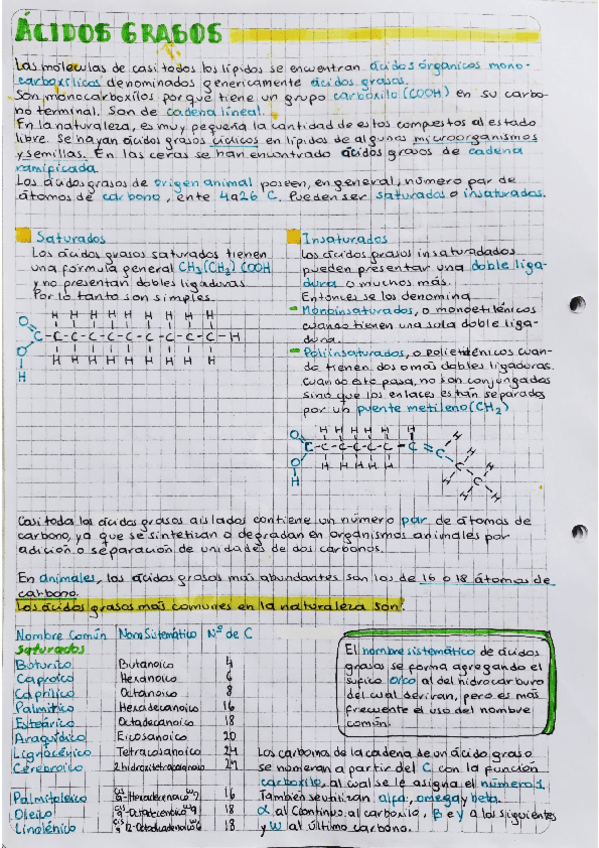 ÁCIDOS GRASOS
Las moléculas de casi todos los lípidos se encuentran ácidos orgánicos mono-
carboxílicos denominados genericamente ácidos grasos.
Son monocarboxilos porque tiene un grupo carboxilo (COOH) en su carbo-
no terminal. Son de cadena lineal.
En la naturaleza, es muy pequeña la cantidad de estos compuestos al estado
libre. Se hayan ácidos grasos cíclicos en lípidos de algunos microorganismos
y semillas. En las ceras se han encontrado ácidos grasos de cadena
ramificada.
Los ácidos grasos de origen animal poseen, en general, número par de
átomos de carbono, ente 4 a 26 C. Pueden ser saturados o insaturados.
Saturados
Los ácidos grasos saturados tienen
una formula general CH3(CH2) COOH
y no presentan dobles ligaduras
Por lo tanto son simples.
Insaturados
Los ácidos grasos insaturadados
pueden presentar una doble liga-
dura o muchos más.
Entonces se los denomina
- Monoinsaturados, o monoetilénicos
cuando tienen una sola doble liga-
dura.
- Poliinsaturados, o polietilénicos cuan-
do tienen dos o más dobles ligaduras.
Cuando este pasa, no son conjungadas
sino que los enlaces están separados
por un puente metileno (CH2)
H H H H H H H H
O
C-C-C-C-C-C-C-C-C-H
O
H
H H H H H H H H
H H H H H H H
O
C-C-C-C-C-C-C=C
O
H
H H H H
C C C
H H H H H
Casi toda los ácidos grasos aislados contiene un número par de átomos de
carbono, ya que se sintetizan o degradan en organismos animales por
adición o separación de unidades de dos carbonos.
En animales, los ácidos grasos más abundantes son los de 16 o 18 átomos de
carbono.
Los ácidos grasos más comunes en la naturaleza son:
Nombre Común Nom Sistemático Nº de C
saturados
Butírico Butanoico 4
Caproico Hexanoico 6
Caprílico Octanoico 8
Palmítico Hexadecanoico 16
Esteárico Octadecanoico 18
Araquídico Eicosanoico 20
Lignocénico Tetracosanoico 24
Cerebroico 24
Palmitoleico cis 9-Hexadecenoico w7 16
Oleico cis 9-Octadecenoico w9 18
Linolénico 18
El nombre sistemático de ácidos
grasos se forma agregando el
sufico oico al del hidrocarburo
del cual derivan, pero es más
frecuente el uso del nombre
común.
Los carbonos de la cadena de un ácido graso
se numeran a partir del C con la función
carboxilo, al cual se le asigna el número 1.
También se utilizan alfa, omega y beta.
α al C continuo al carboxilo, β e γ a los siguientes
y ω al último carbono.